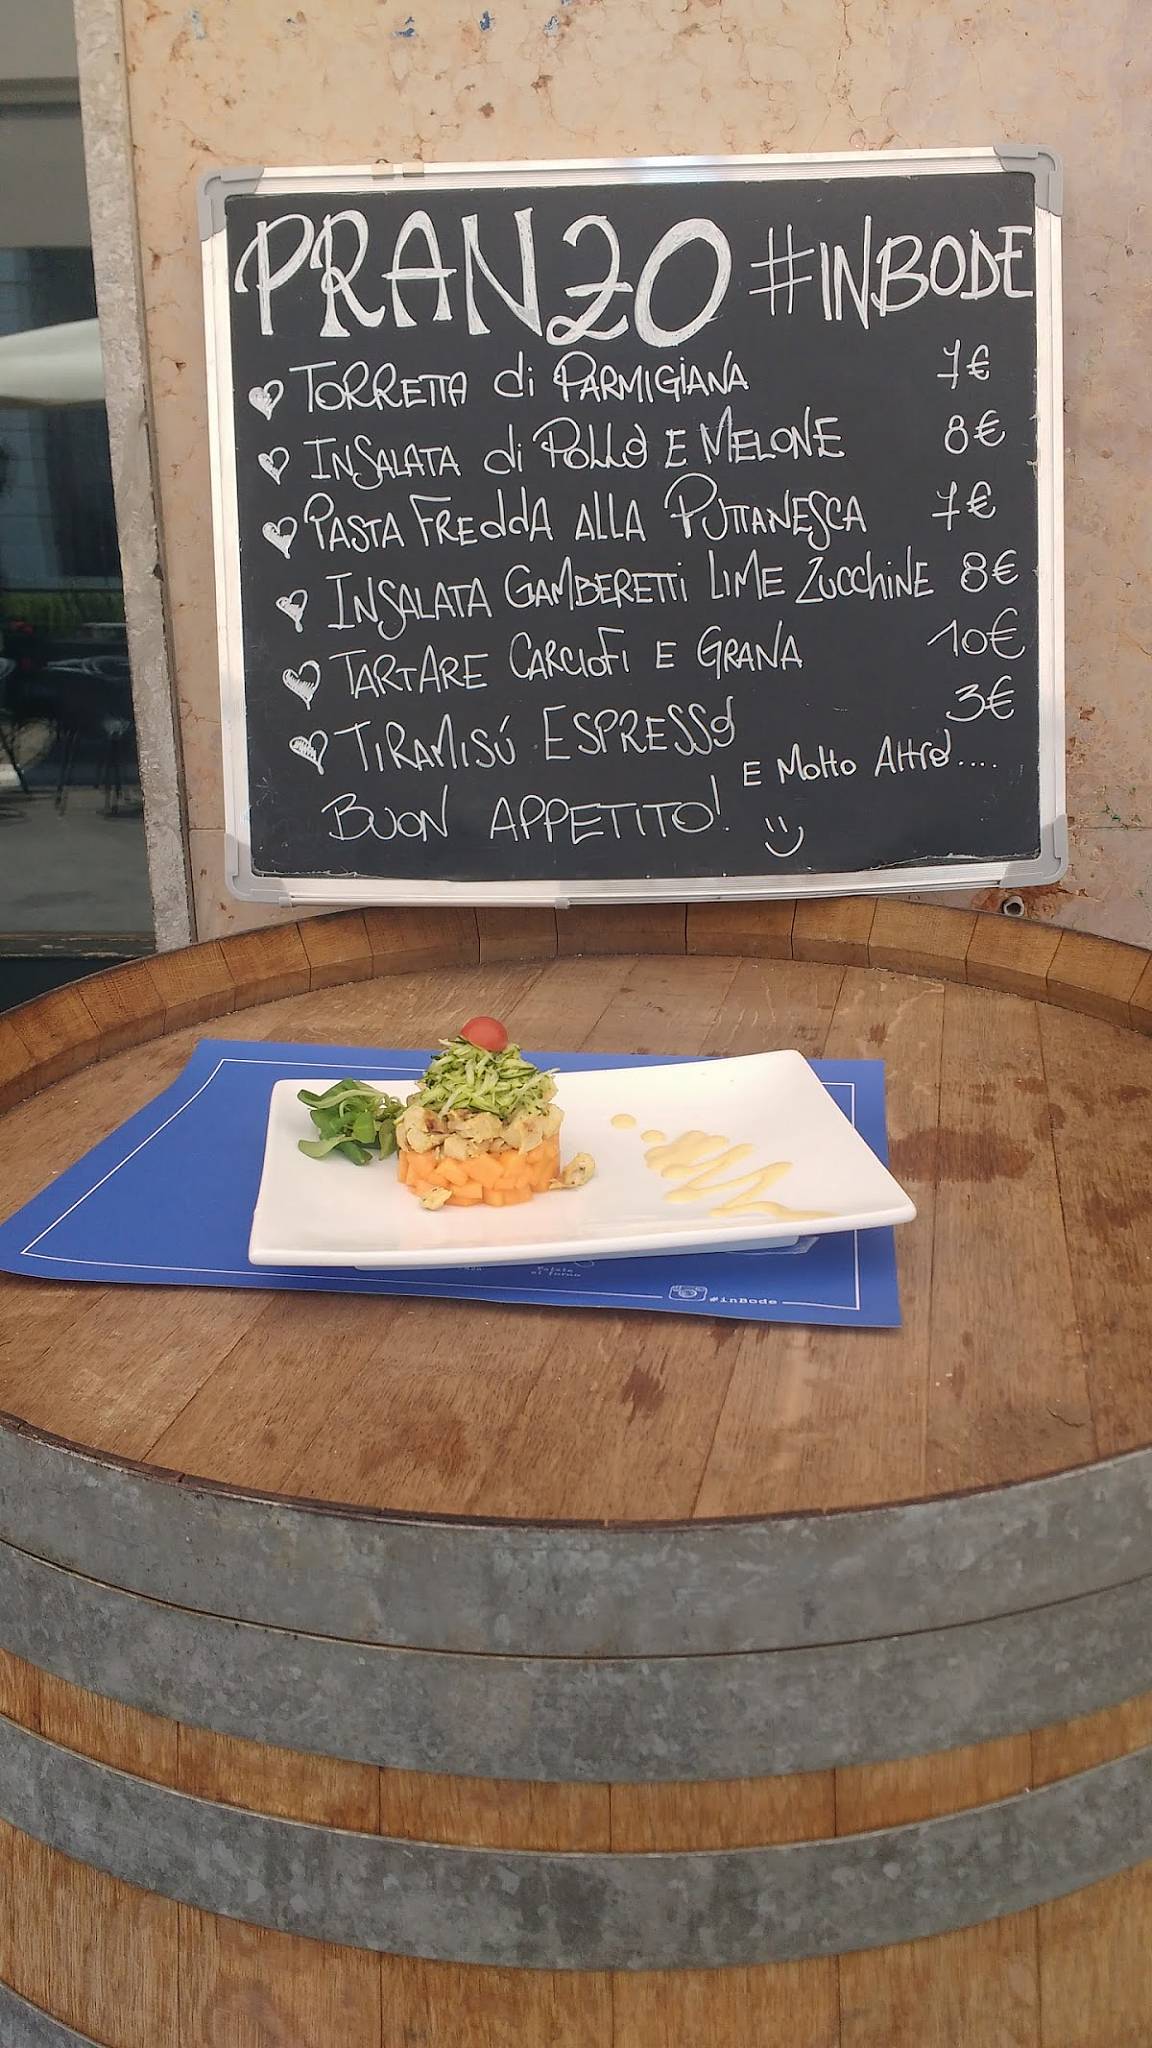 PRANZO #INBODE
TORRETTA di PARMIGIANA 7€
INSALATA di POLLO E MELONE 8€
PASTA FREDDA ALLA PUTTANESCA 7€
INSALATA GAMBERETTI LIME ZUCCHINE 8€
TARTARE CARCIOFI E GRANA 10€
TIRAMISÚ ESPRESSO 3€
E Molto Altro....
BUON APPETITO!
#inBode